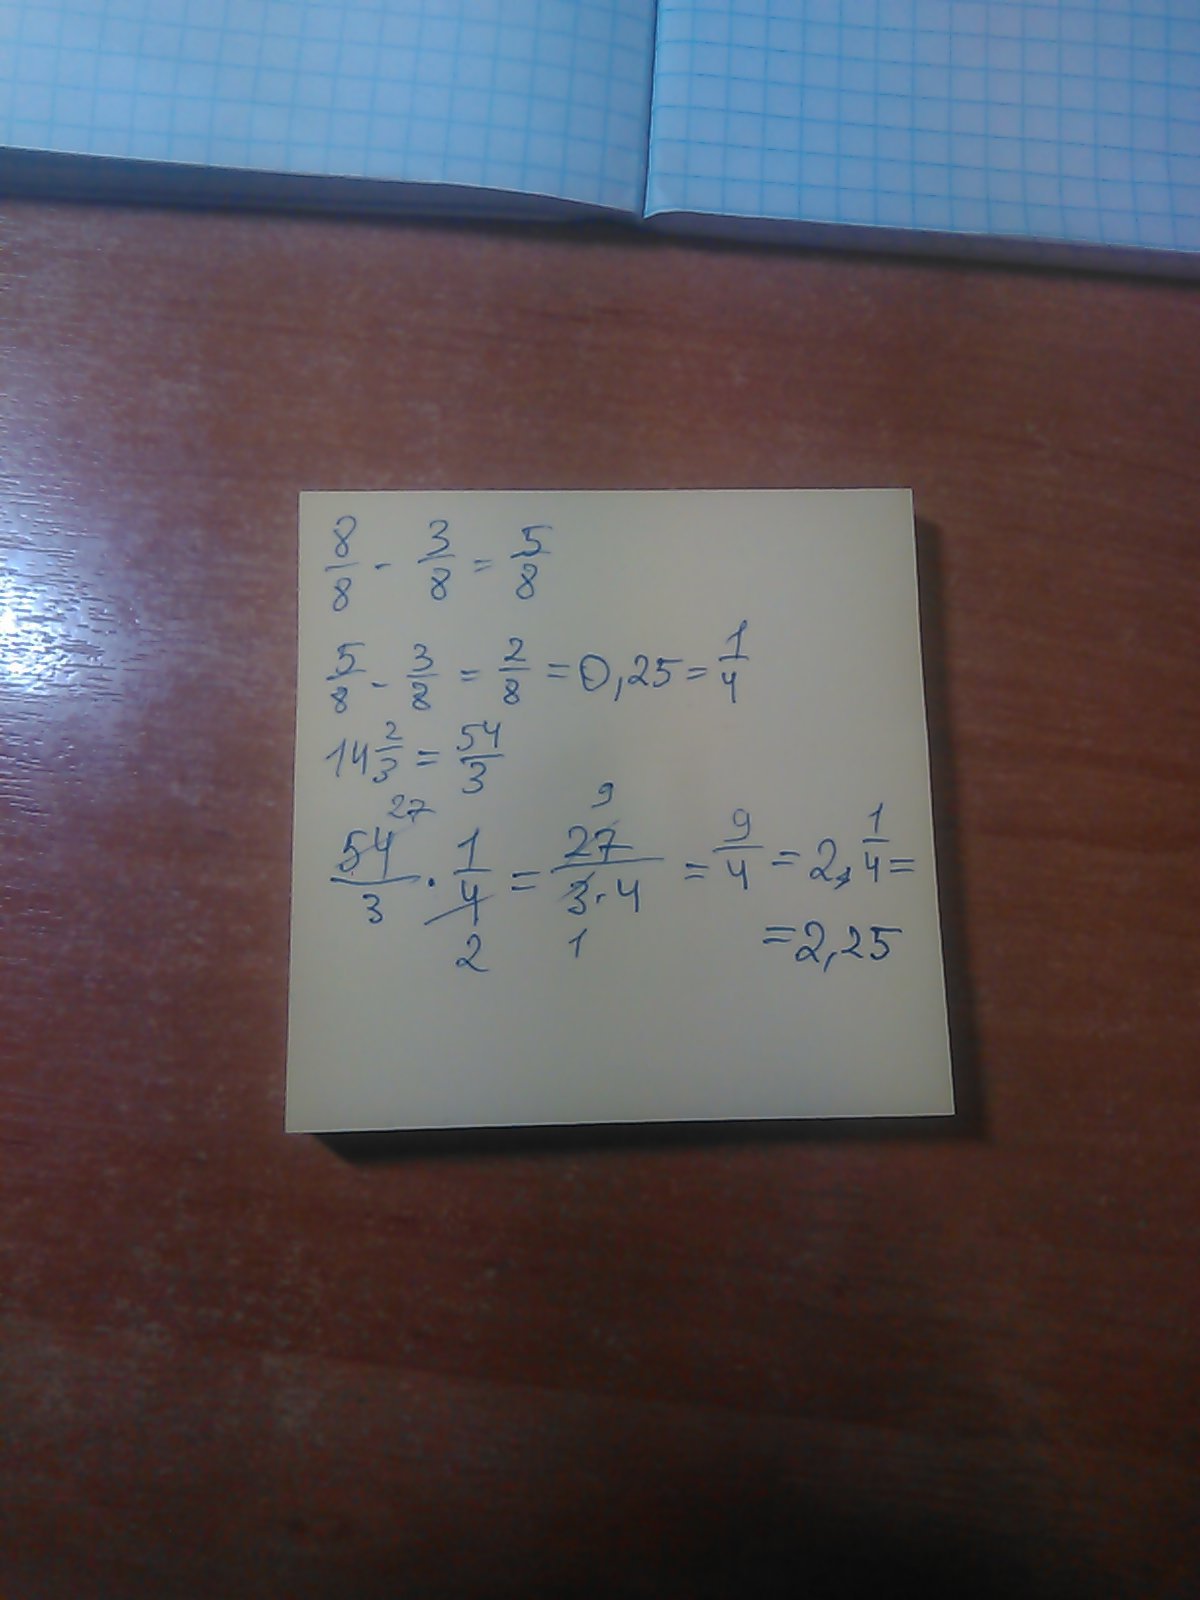 8/8 - 3/8 = 5/8
5/8 - 3/8 = 2/8 = 0,25 = 1/4
14 2/3 = 54/3
27 9
54/3 · 1/4 = 27/3·4 = 9/4 = 2, 1/4 =
2 1 = 2,25